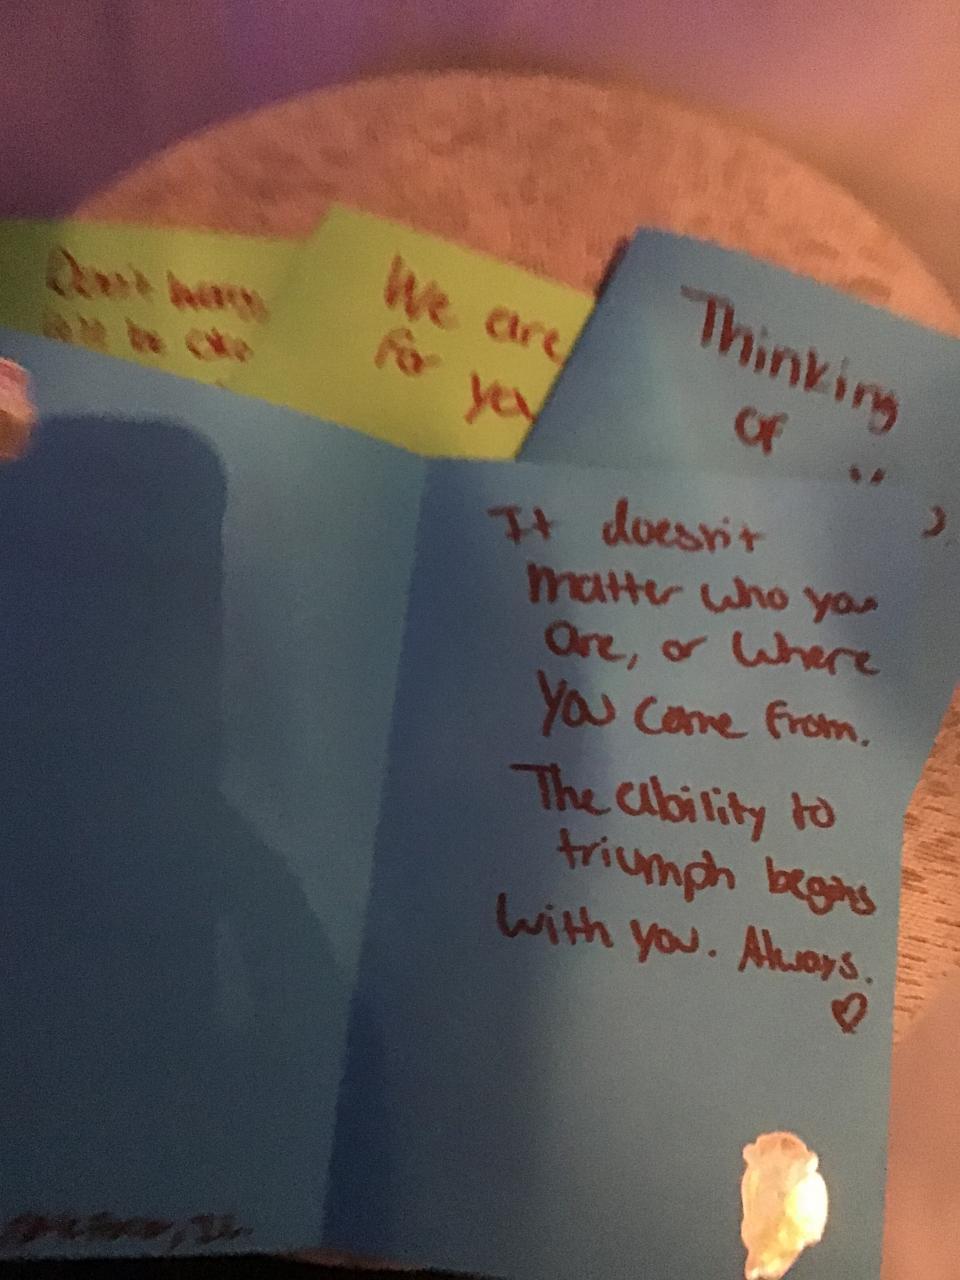 Don't worry
be oka
We are
for you
Thinking
of
It doesn't
matter who you
are, or where
you come from.
The ability to
triumph begins
with you. Always.